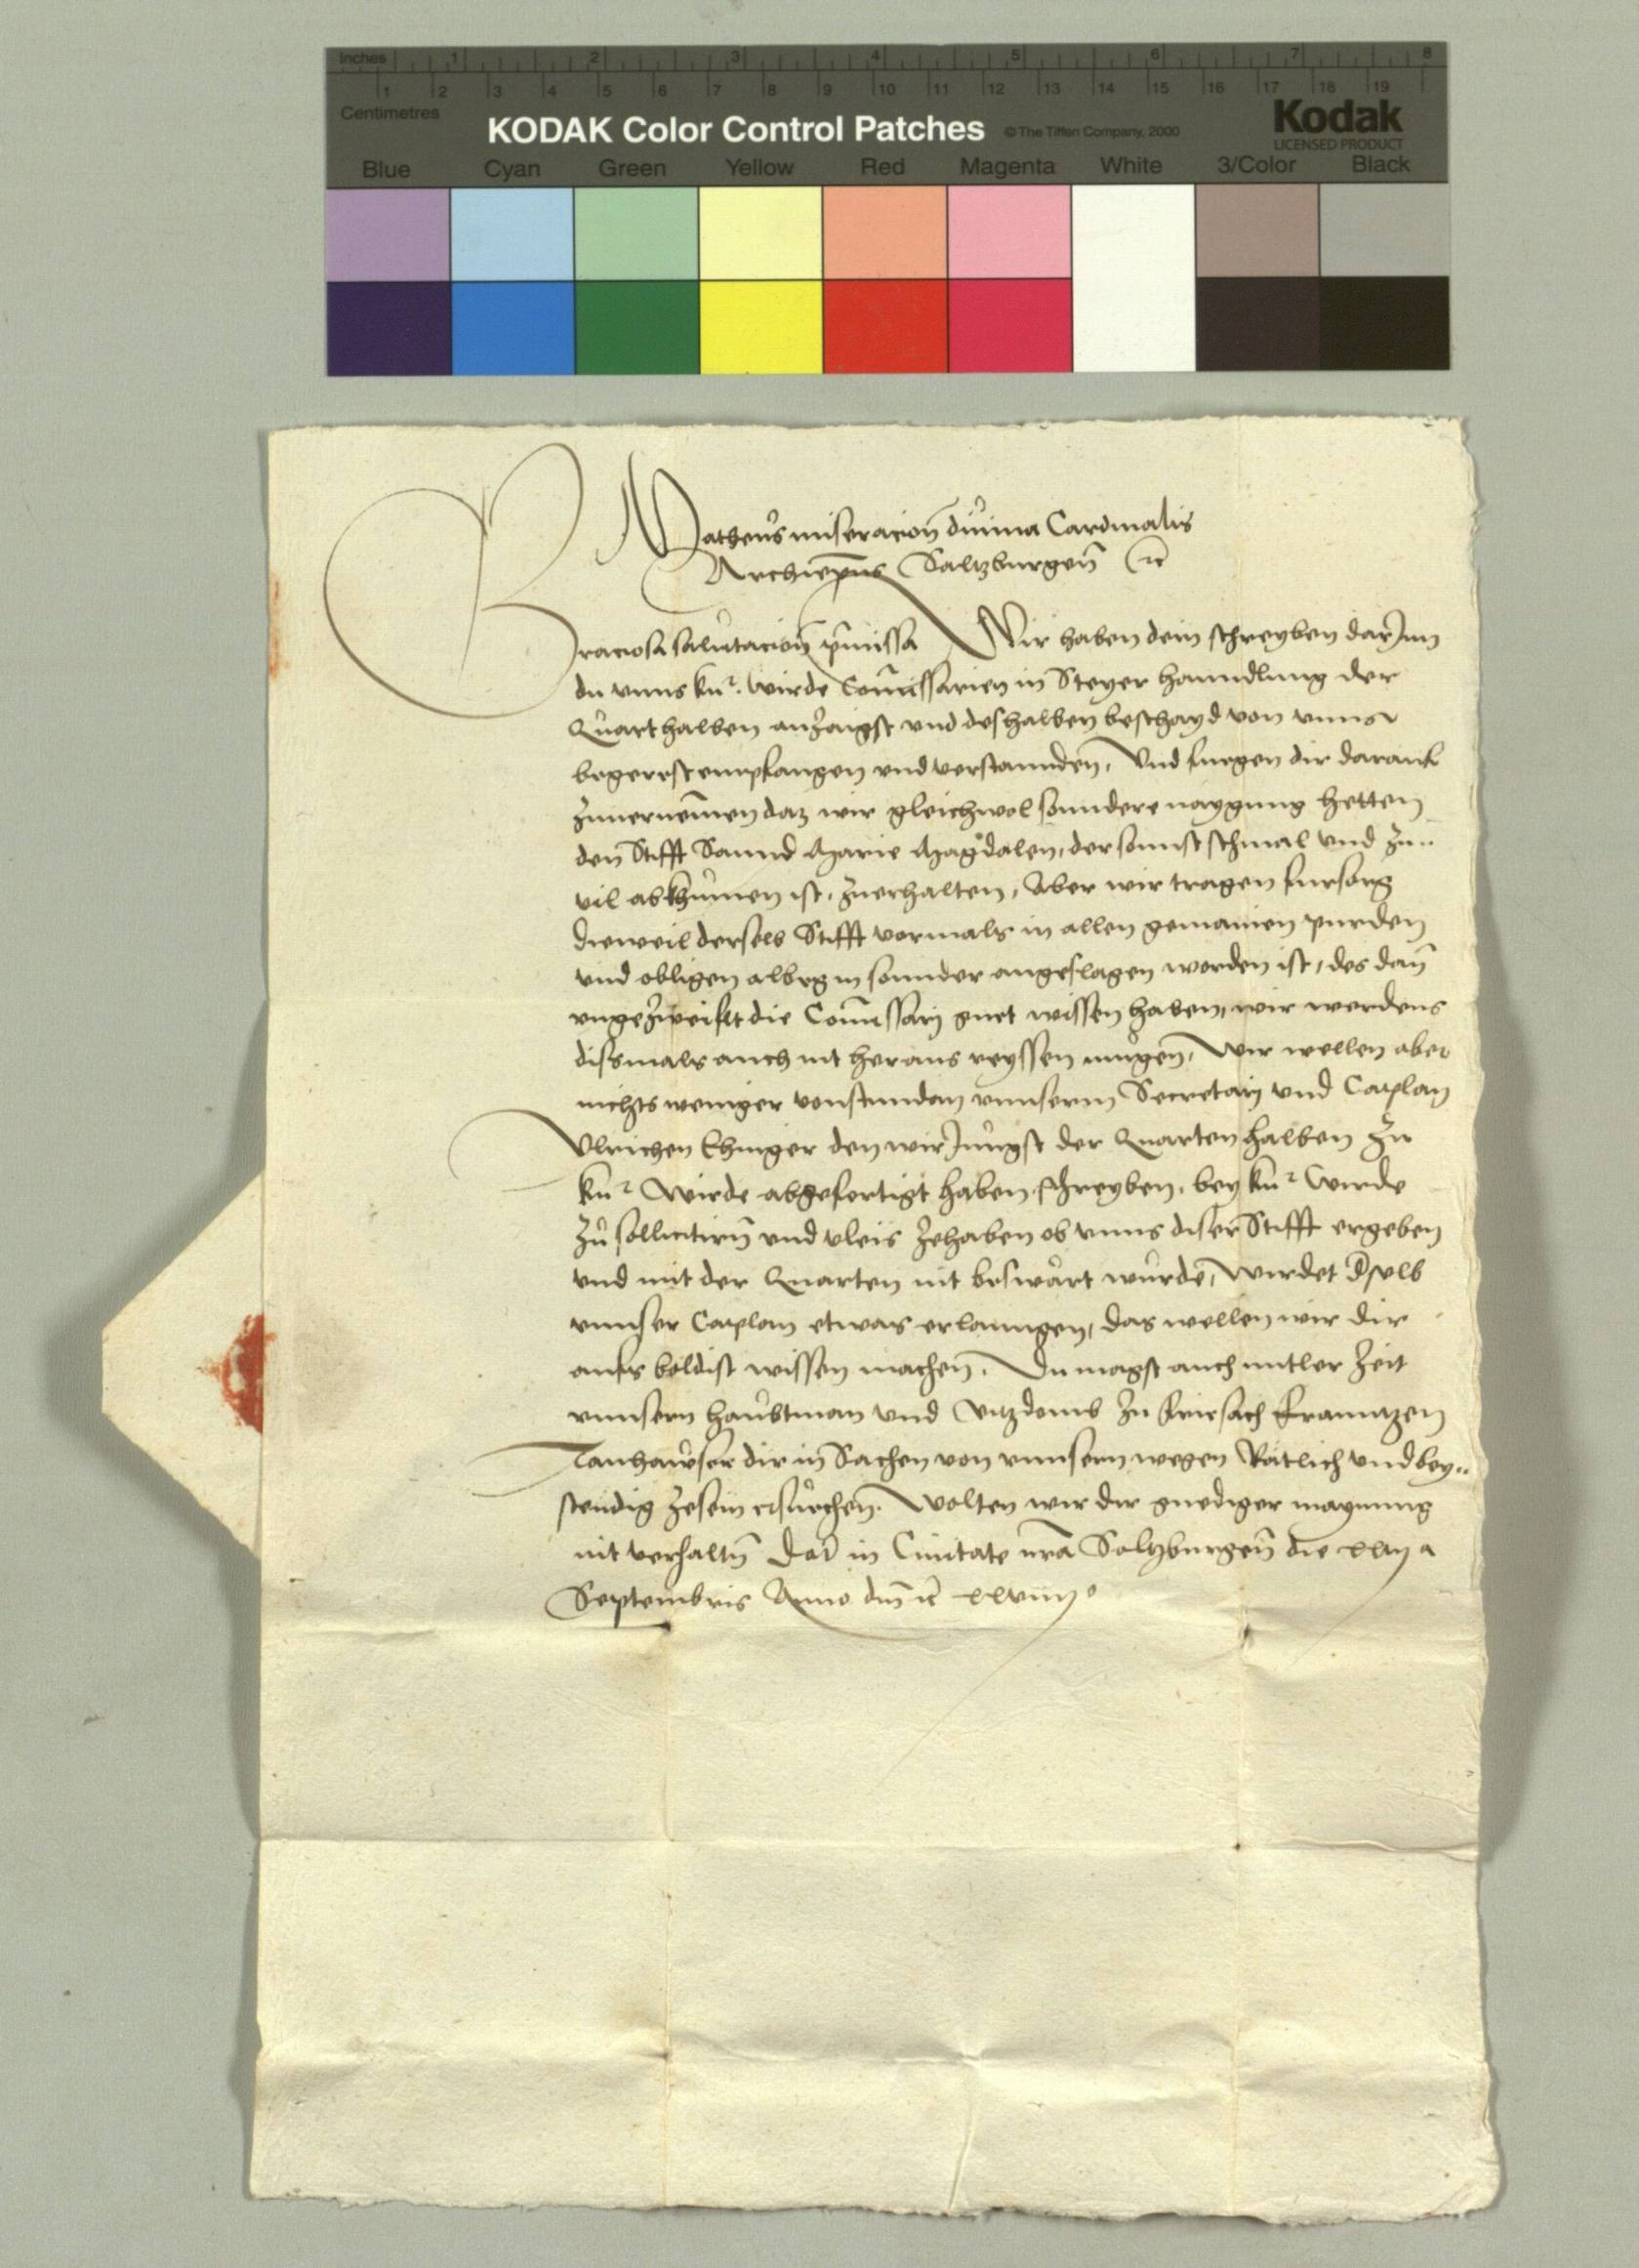 Inches 1 2 3 4 5 6 7 8
1 2 3 4 5 6 7 8 9 10 11 12 13 14 15 16 17 18 19
Centimetres
KODAK Color Control Patches © The Tiffen Company, 2000 Kodak
LICENSED PRODUCT
Blue Cyan Green Yellow Red Magenta White 3/Color Black
Matheus miseracion̄ diuina Cardinalis
Archiep̄us Saltzburgen̄ ꝛc̄
Graciosa salutacion̄ p̄missa Wir haben dein schreyben darJnn
du vnns kuͦr. wirde Com̄issarien in Steyer hanndlung der
Quart halben anzaigst vnd deshalben beschayd von vnns
begerest empfangen vnd verstannden, Vnd fuegen dir darauf
zuuernemen daz wir gleichwol sonndere naygung hetten
den Stifft Sannd Marie Magdalen, der sonnst schmal vnd zu..
vil abkhumen ist, zuerhalten, Aber wir tragen fursorg
dieweil derselb Stifft vormals in allen gemainen purden
vnd obligen albeg in sonnder angeslagen worden ist, des dan̄
vngezweiflt die Com̄issarj guet wissen haben, wir werdens
dissmals auch nit heraus reyssen mugen, Wir wellen aber
nichts weniger vonstundan vnnserm Secretarj vnd Caplan
Vlrichen Ehinger den wir Jungst der Quarten halben zu
kuͦr wirde abgefertigt haben, schreyben, bey kuͦr wirde
zu sollicitirn̄ vnd vleis zehaben ob vnns diser Stifft ergeben
vnd mit der Quarten nit beswart wurde, Wirdet d̄selb
vnnser Caplan etwas erlanngen, das wellen wir dir
aufs beldist wissen machen. Du magst auch mitler zeit
vnnsern haubtman vnd Vitzdomb zu Friesach Franntzen
Tanhauser dir in Sachen von vnnsern wegen Rätlich vnd bey..
stendig zesein ersuechen. Wolten wir dir gnediger maynung
nit verhaltn̄ Dat̄ in Ciuitate nr̄a Saltzburgen̄ die
Septembris Anno dn̄i ꝛc̄ xxviiijo